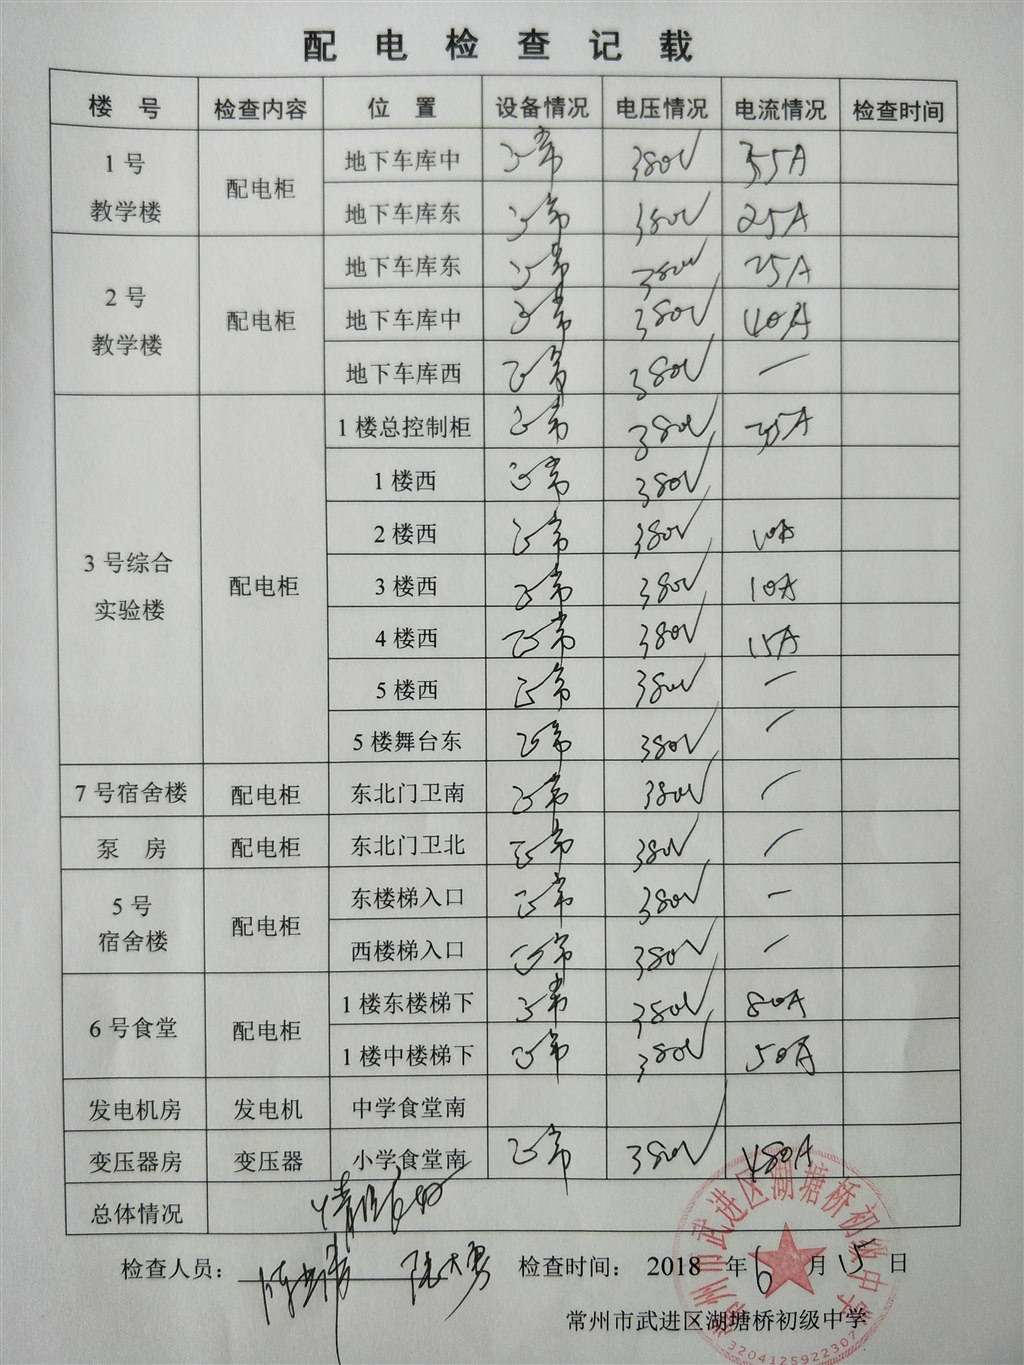 配 电 检 查 记 载
楼 号 检查内容 位 置 设备情况 电压情况 电流情况 检查时间
1 号
教学楼
配电柜
地下车库中 正常 380V 35A
地下车库东 正常 380V 25A
2 号
教学楼
配电柜
地下车库东 正常 380V 25A
地下车库中 正常 380V 40A
地下车库西 正常 380V —
3 号综合
实验楼
配电柜
1 楼总控制柜 正常 380V 35A
1 楼西 正常 380V
2 楼西 正常 380V 10A
3 楼西 正常 380V 10A
4 楼西 正常 380V 15A
5 楼西 正常 380V —
5 楼舞台东 正常 380V —
7 号宿舍楼 配电柜 东北门卫南 正常 380V —
泵 房 配电柜 东北门卫北 正常 380V —
5 号
宿舍楼
配电柜
东楼梯入口 正常 380V —
西楼梯入口 正常 380V —
6 号食堂
配电柜
1 楼东楼梯下 正常 380V 80A
1 楼中楼梯下 正常 380V 50A
发电机房 发电机 中学食堂南
变压器房 变压器 小学食堂南 正常 380V 480A
总体情况 情况良好
检查人员： 检查时间： 2018 年 6 月 15 日
常州市武进区湖塘桥初级中学
常州市武进区湖塘桥初级中学
3204125922307